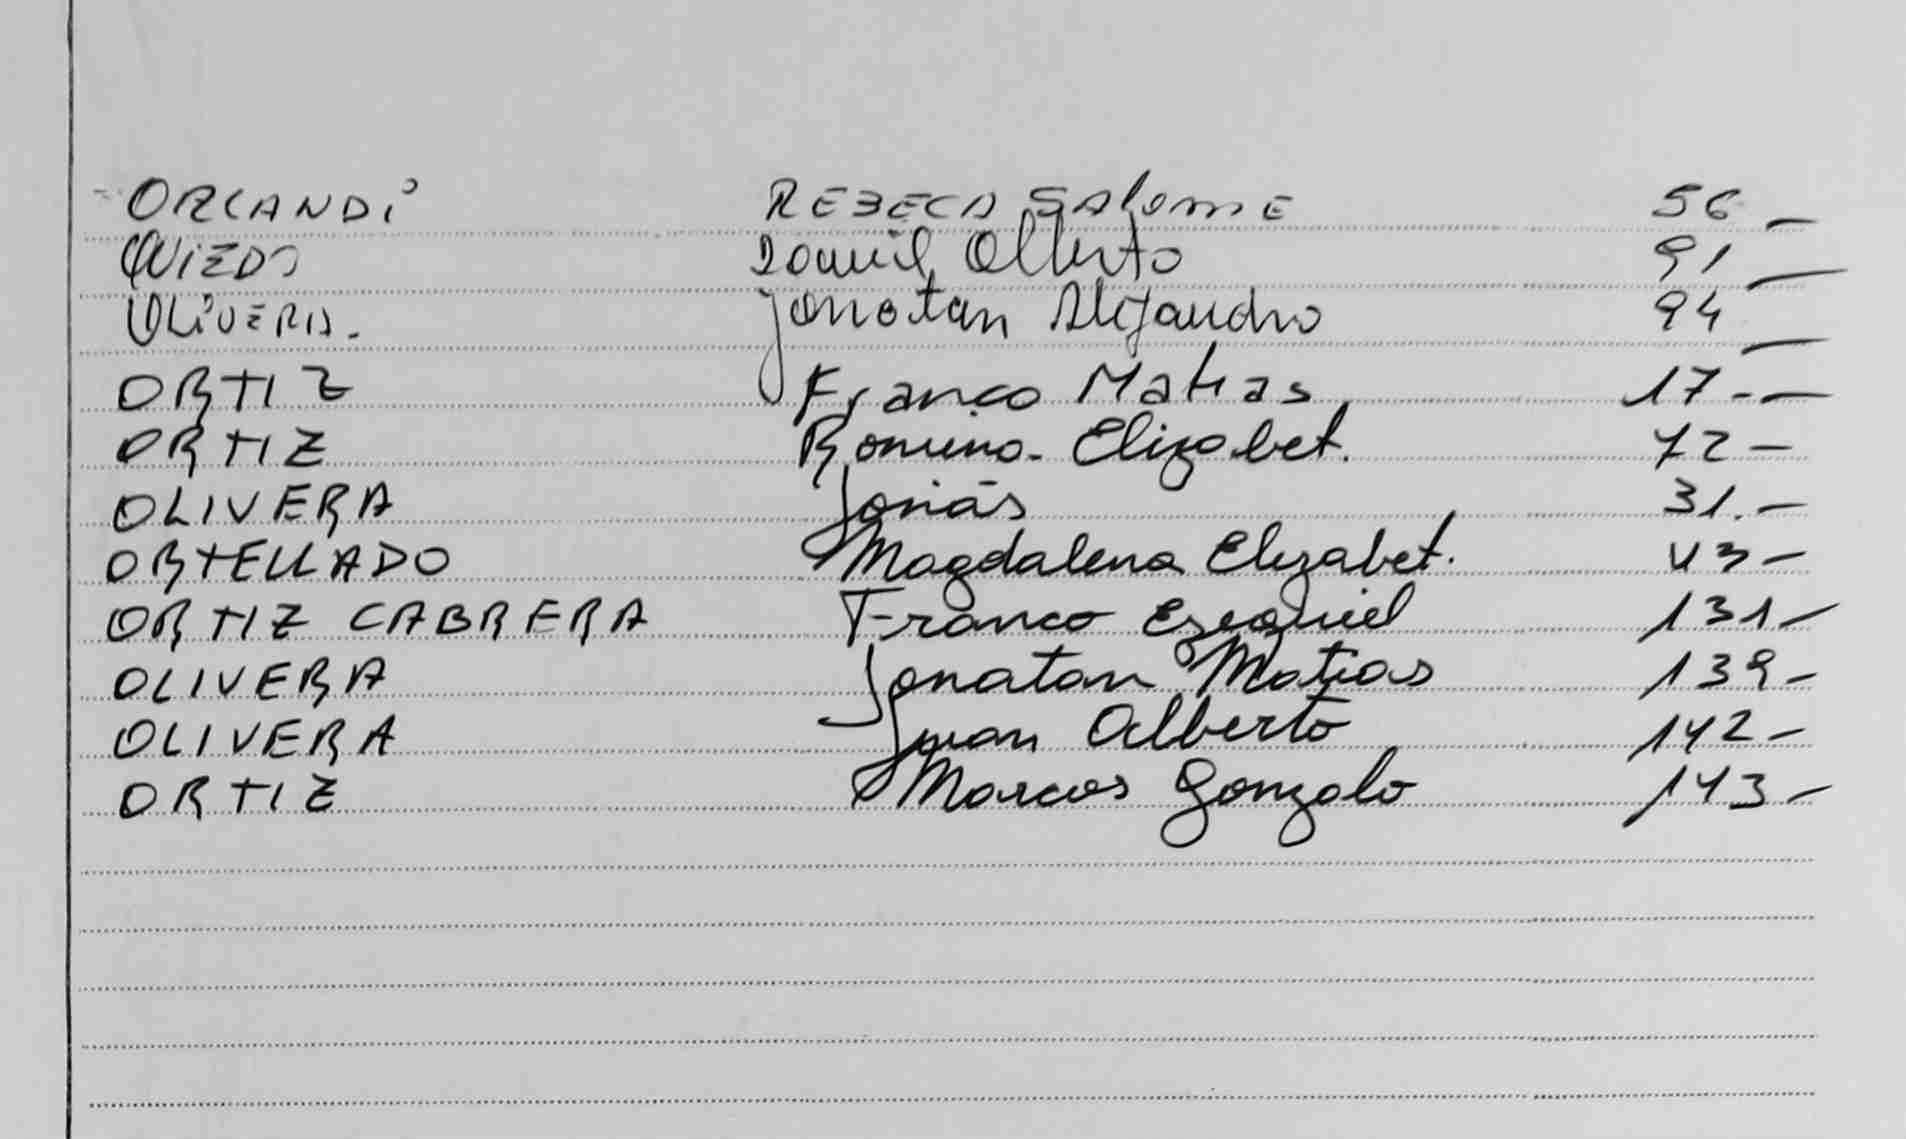 ORLANDI REBECA SALOME 56 -
OVIEDO Daniel Alberto 91 -
OLIVERA. Jonatan Alejandro 94 -
ORTIZ Franco Matias 17 - -
ORTIZ Romina - Elizabet. 72 -
OLIVERA Jonás 31. -
ORTELLADO Magdalena Elizabet. 43 -
ORTIZ CABRERA Franco Ezequiel 131 -
OLIVERA Jonatan Matias 139 -
OLIVERA Juan Alberto 142 -
ORTIZ Marcos Gonzalo 143 -